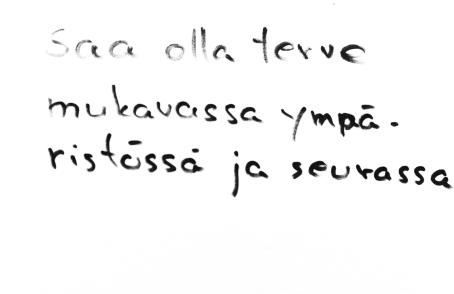 Saa olla terve
mukavassa ympä-
ristössä ja seurassa